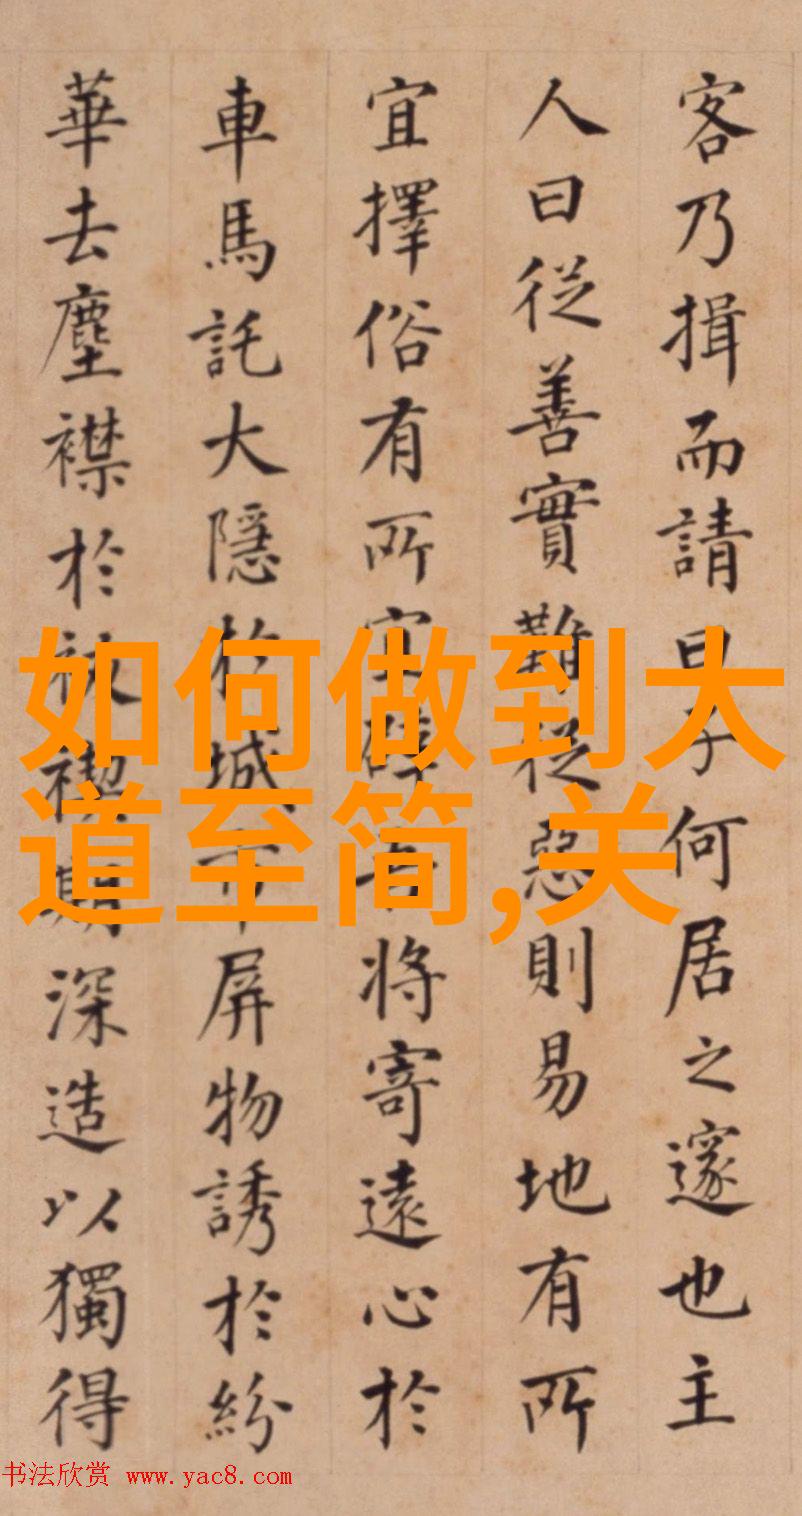 客乃揖而請曰子何居之邃也主
人曰從善實難從惡則易地有所
宜擇俗有所宜辟吾將寄遠心於
車馬託大隱於城市屏物誘於紛
華去塵襟於祓禊期深造以獨得
如何做到大
道至简,关
书法欣赏 www.yac8.com